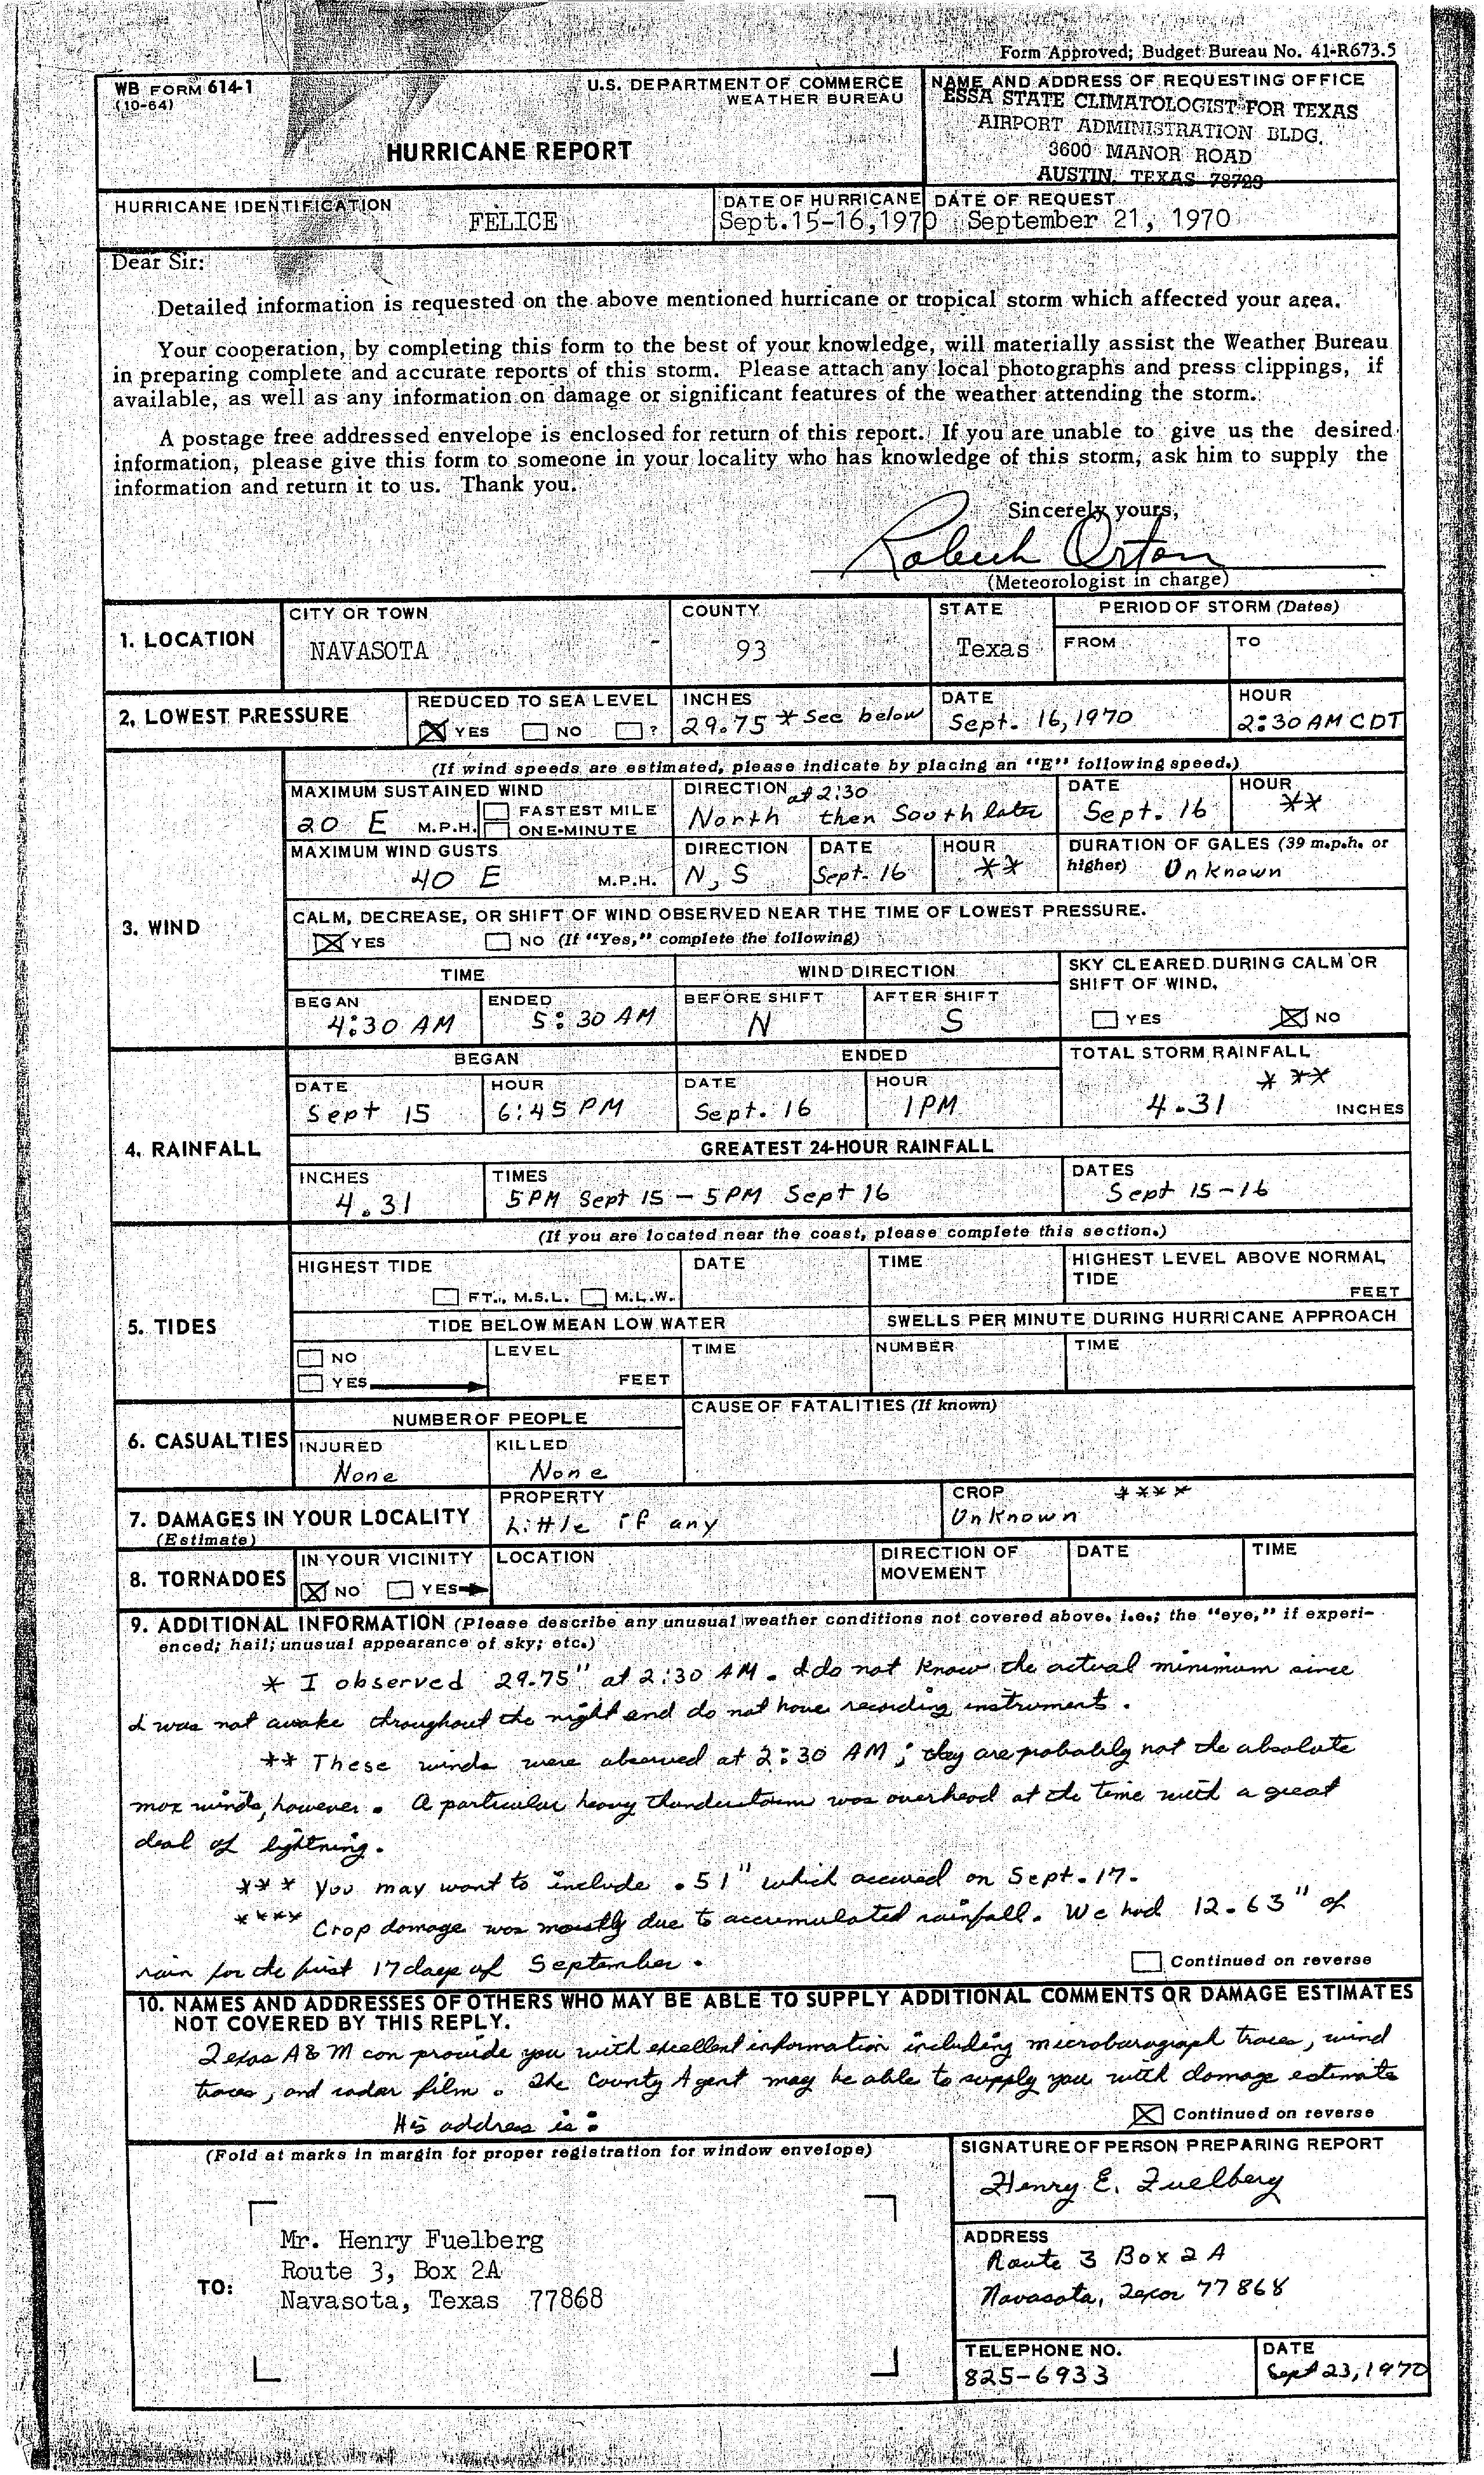 Form Approved; Budget Bureau No. 41-R673.5
WB FORM 614-1
(10-64)
U.S. DEPARTMENT OF COMMERCE
WEATHER BUREAU
HURRICANE REPORT
NAME AND ADDRESS OF REQUESTING OFFICE
ESSA STATE CLIMATOLOGIST FOR TEXAS
AIRPORT ADMINISTRATION BLDG.
3600 MANOR ROAD
AUSTIN, TEXAS 78723
HURRICANE IDENTIFICATION
FELICE
DATE OF HURRICANE
Sept.15-16,1970
DATE OF REQUEST
September 21, 1970
Dear Sir:
Detailed information is requested on the above mentioned hurricane or tropical storm which affected your area.
Your cooperation, by completing this form to the best of your knowledge, will materially assist the Weather Bureau
in preparing complete and accurate reports of this storm. Please attach any local photographs and press clippings, if
available, as well as any information on damage or significant features of the weather attending the storm.
A postage free addressed envelope is enclosed for return of this report. If you are unable to give us the desired
information, please give this form to someone in your locality who has knowledge of this storm, ask him to supply the
information and return it to us. Thank you.
Sincerely yours,
Orton
(Meteorologist in charge)
1. LOCATION
CITY OR TOWN
NAVASOTA -
COUNTY
93
STATE
Texas
PERIOD OF STORM (Dates)
FROM
TO
2. LOWEST PRESSURE
REDUCED TO SEA LEVEL
YES NO ?
INCHES
29.75 * See below
DATE
Sept. 16, 1970
HOUR
2:30 AM CDT
3. WIND
(If wind speeds are estimated, please indicate by placing an "E" following speed.)
MAXIMUM SUSTAINED WIND
20 E M.P.H.
FASTEST MILE
ONE-MINUTE
DIRECTION at 2:30
North then South later
DATE
Sept. 16
HOUR
**
MAXIMUM WIND GUSTS
40 E M.P.H.
DIRECTION
N, S
DATE
Sept. 16
HOUR
**
DURATION OF GALES (39 m.p.h. or
higher) Unknown
CALM, DECREASE, OR SHIFT OF WIND OBSERVED NEAR THE TIME OF LOWEST PRESSURE.
YES NO (If "Yes," complete the following)
TIME
BEGAN
4:30 AM
ENDED
5:30 AM
WIND DIRECTION
BEFORE SHIFT
N
AFTER SHIFT
S
SKY CLEARED DURING CALM OR
SHIFT OF WIND.
YES NO
4. RAINFALL
BEGAN
DATE
Sept 15
HOUR
6:45 PM
ENDED
DATE
Sept. 16
HOUR
1PM
TOTAL STORM RAINFALL
***
4.31 INCHES
GREATEST 24-HOUR RAINFALL
INCHES
4.31
TIMES
5PM Sept 15 - 5PM Sept 16
DATES
Sept 15-16
5. TIDES
(If you are located near the coast, please complete this section.)
HIGHEST TIDE
FT., M.S.L. M.L.W.
DATE
TIME
HIGHEST LEVEL ABOVE NORMAL
TIDE
FEET
TIDE BELOW MEAN LOW WATER
NO
YES
LEVEL
FEET
TIME
SWELLS PER MINUTE DURING HURRICANE APPROACH
NUMBER
TIME
6. CASUALTIES
NUMBER OF PEOPLE
INJURED
None
KILLED
None
CAUSE OF FATALITIES (If known)
7. DAMAGES IN YOUR LOCALITY
(Estimate)
PROPERTY
Little if any
CROP ****
Unknown
8. TORNADOES
IN YOUR VICINITY
NO YES
LOCATION
DIRECTION OF
MOVEMENT
DATE
TIME
9. ADDITIONAL INFORMATION (Please describe any unusual weather conditions not covered above. i.e.; the "eye," if experi-
enced; hail; unusual appearance of sky; etc.)
* I observed 29.75" at 2:30 AM. I do not know the actual minimum since
I was not awake throughout the night and do not have recording instrument.
** These winds were observed at 2:30 AM; they are probably not the absolute
max winds, however. A particular heavy thunderstorm was overhead at the time with a great
deal of lightning.
*** You may want to include .51" which occured on Sept. 17.
**** Crop damage was mostly due to accumulated rainfall. We had 12.63" of
rain for the first 17 days of September.
Continued on reverse
10. NAMES AND ADDRESSES OF OTHERS WHO MAY BE ABLE TO SUPPLY ADDITIONAL COMMENTS OR DAMAGE ESTIMATES
NOT COVERED BY THIS REPLY.
Texas A&M can provide you with excellent information including microbarograph traces, wind
traces, and radar film. The County Agent may be able to supply you with damage estimate
His address is:
Continued on reverse
(Fold at marks in margin for proper registration for window envelope)
TO:
Mr. Henry Fuelberg
Route 3, Box 2A
Navasota, Texas 77868
SIGNATURE OF PERSON PREPARING REPORT
Henry E. Fuelberg
ADDRESS
Route 3 Box 2A
Navasota, Texas 77868
TELEPHONE NO.
825-6933
DATE
Sept 23, 1970